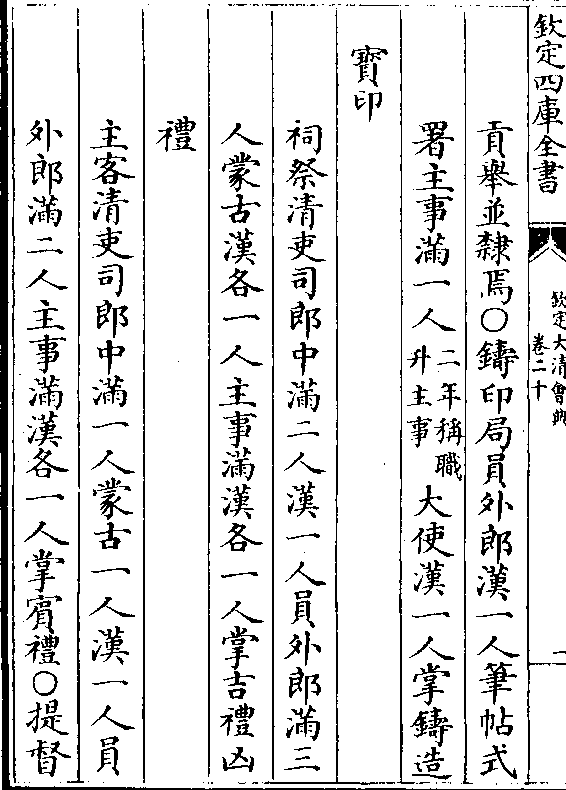 欽定四庫全書
欽定大清會典
卷二十
一
貢舉並隸焉○鑄印局員外郎漢一人筆帖式
署主事滿一人二年稱職升主事大使漢一人掌鑄造
寶印
祠祭清吏司郎中滿二人漢一人員外郎滿三
人蒙古漢各一人主事滿漢各一人掌吉禮凶
禮
主客清吏司郎中滿一人蒙古一人漢一人員
外郎滿二人主事滿漢各一人掌賓禮○提督